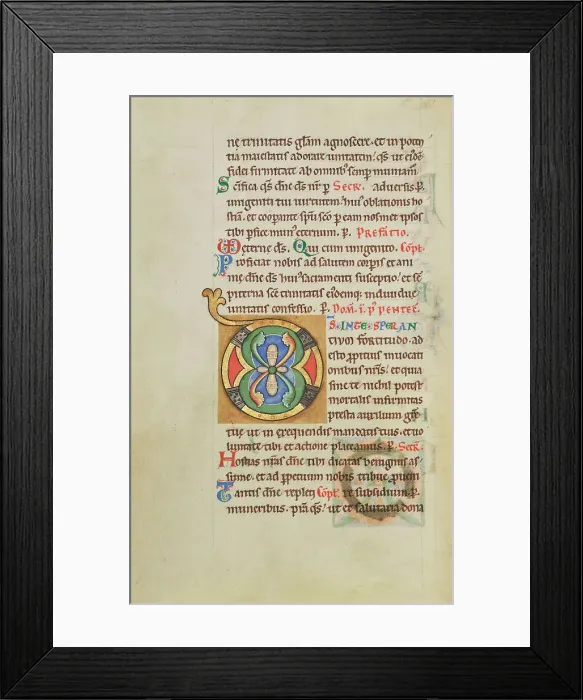 ne trinitatis glam agnoscere. et in poten
tia maiestatis adorare unitatem. qs ut eidē
fidei firmitate ab omnib; semp muniam
Scifica qs dne ds nr p Secr. aduersis. p.
unigeniti tui uirtutem hui oblationis ho
stiā. et coopante spu sco p eam nosmet ipsos
tibi pfice mun eternum. p. Prefatio.
eterne ds. Qui cum unigenito. Copl.
Proficiat nobis ad salutem corpis et ani
me dne ds hui sacramenti susceptio. et se
piterna sce trinitatis eidemq; indiuidue
unitatis confessio. p. Dom. i. p pentec.
DS INTE SPERAN
tium fortitudo. ad
esto ppitius inuocati
onibus nris. et quia
sine te nichil potest
mortalis infirmitas
presta auxilium gre
tie ut in exequendis mandatis tuis. et uo
luntate tibi et actione placeamus. p. Secr.
Hostias nras dne tibi dicatas benignus as
sume. et ad ppetuum nobis tribue puen
Tantis dne repleti Copl. re subsidium. p.
muneribus. pta qs. ut et salutaria dona